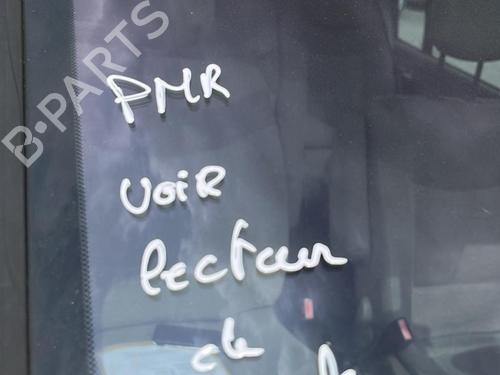 B-PARTS
PMR
VOIR
lecteur
de